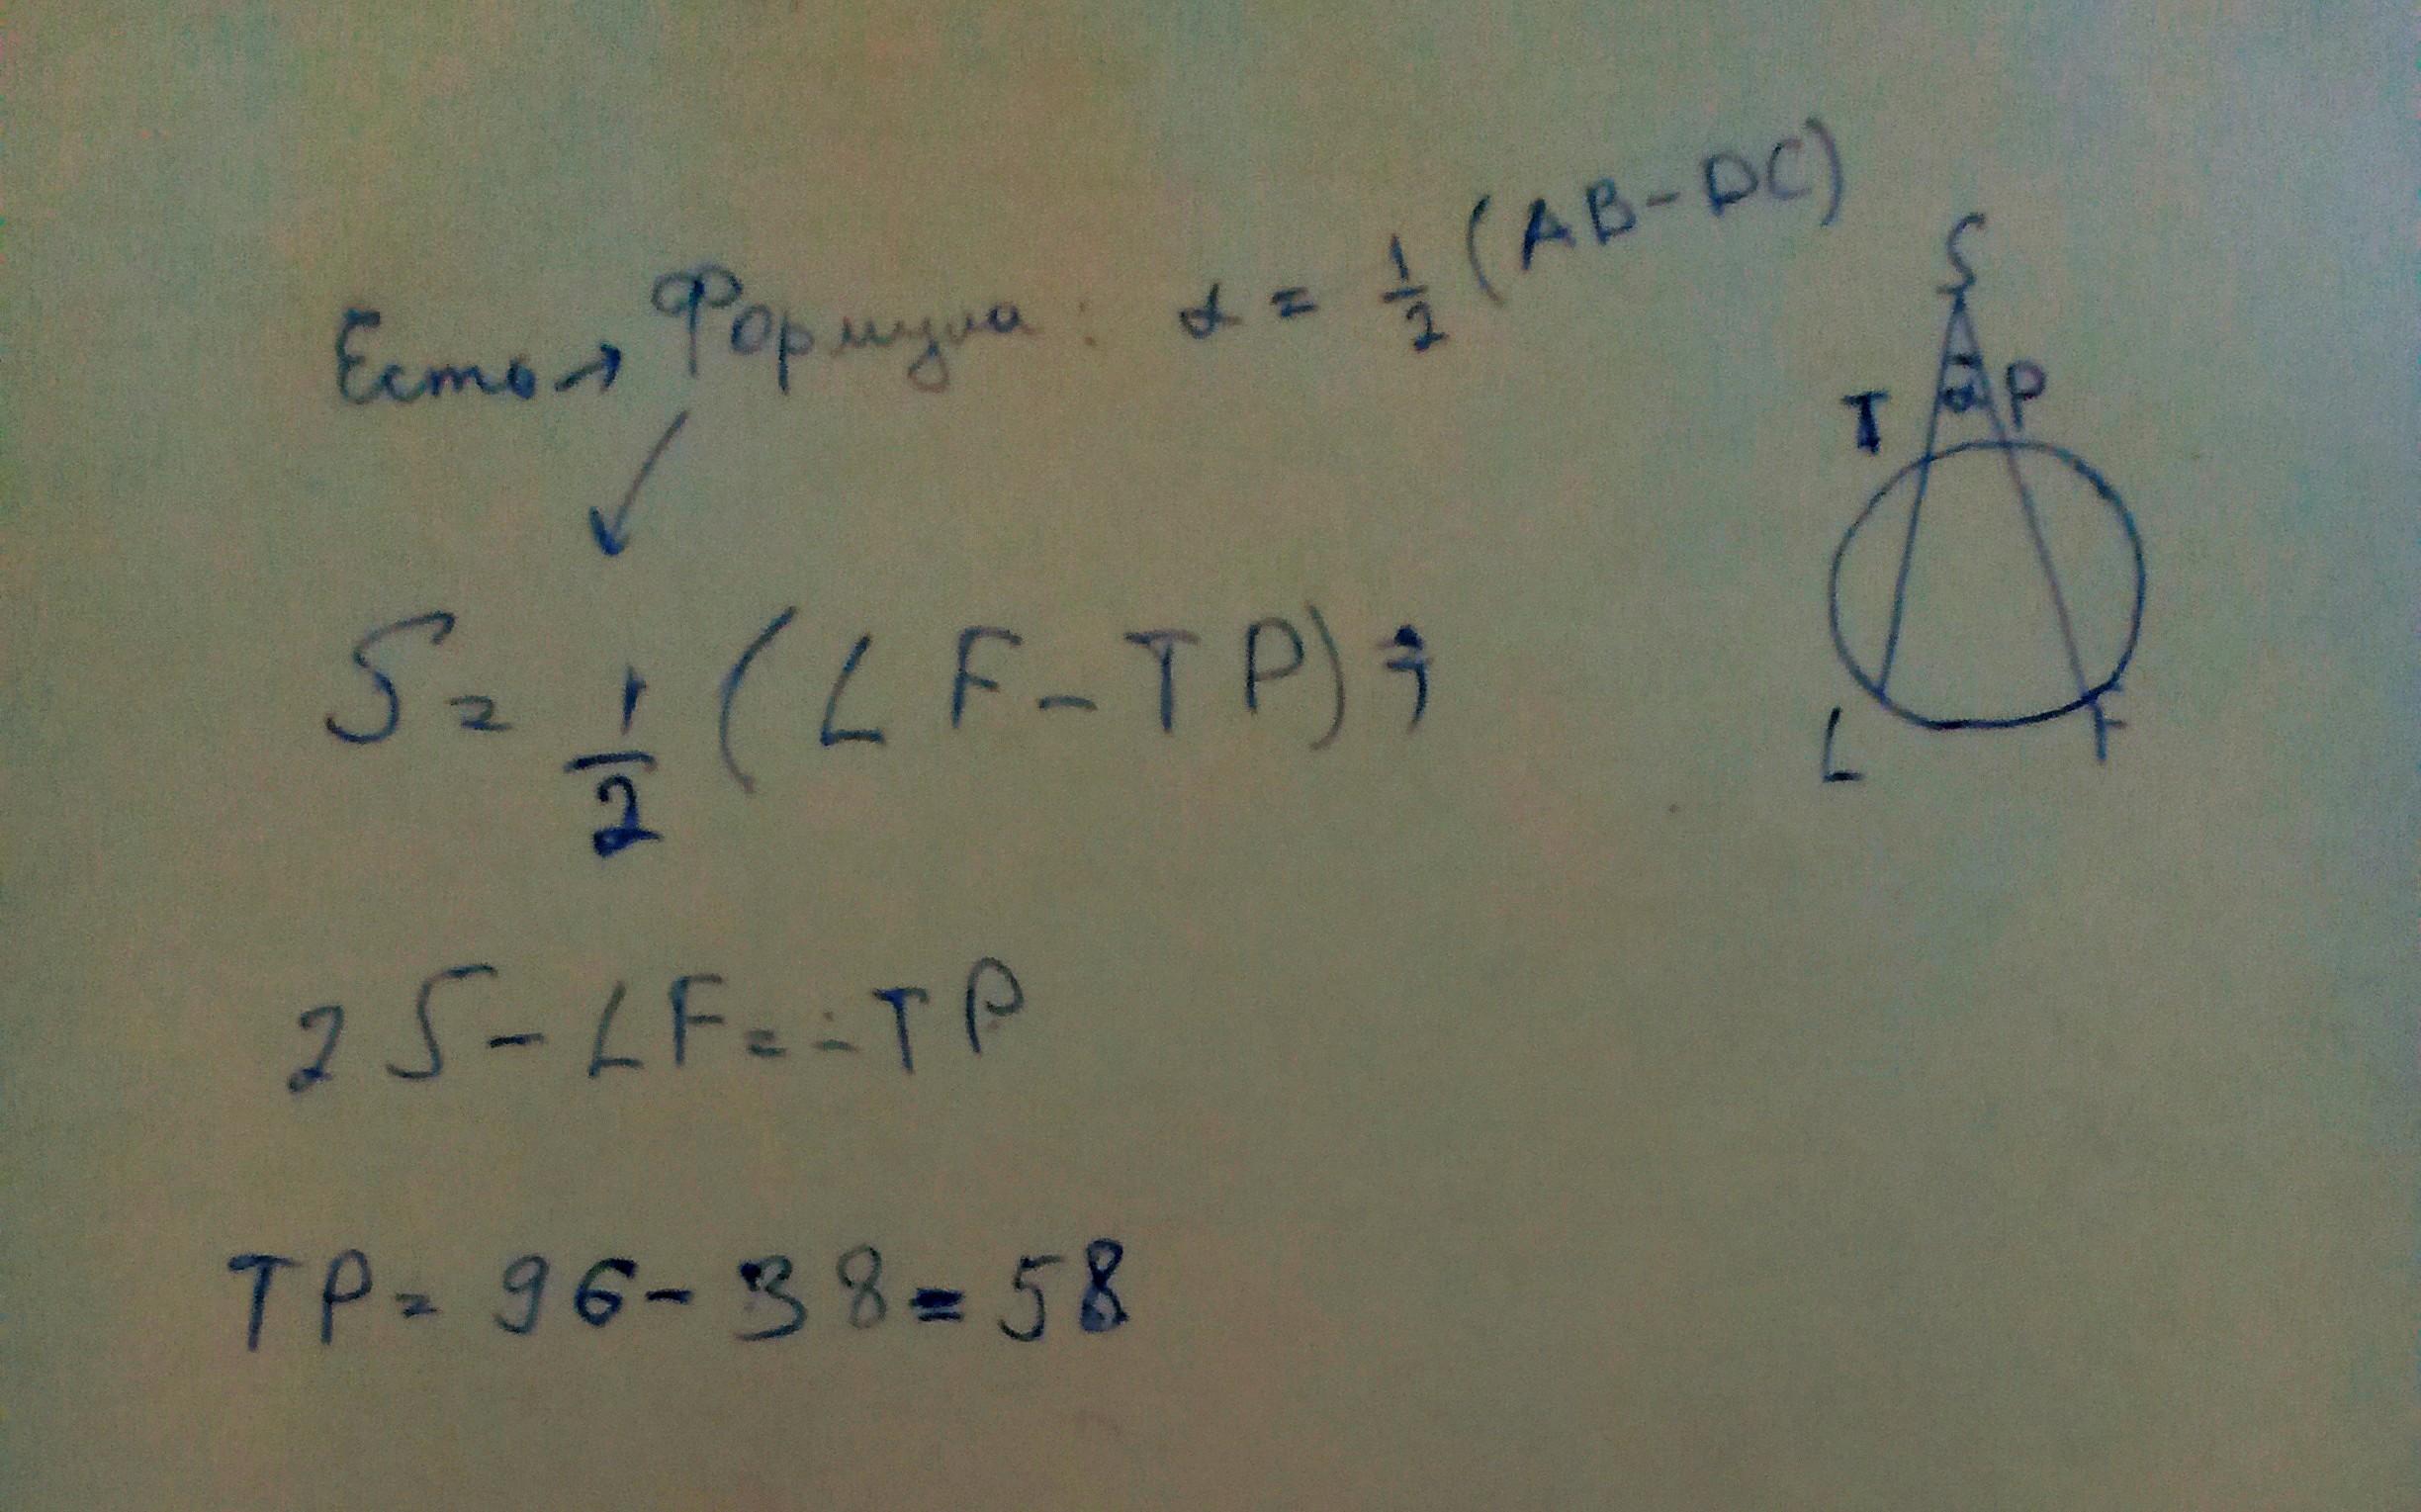 Есть → Формула: α = 1/2 (AB - DC)
S = 1/2 (LF - TP);
2S - LF = -TP
TP = 96 - 38 = 58
S
α
T P
L F